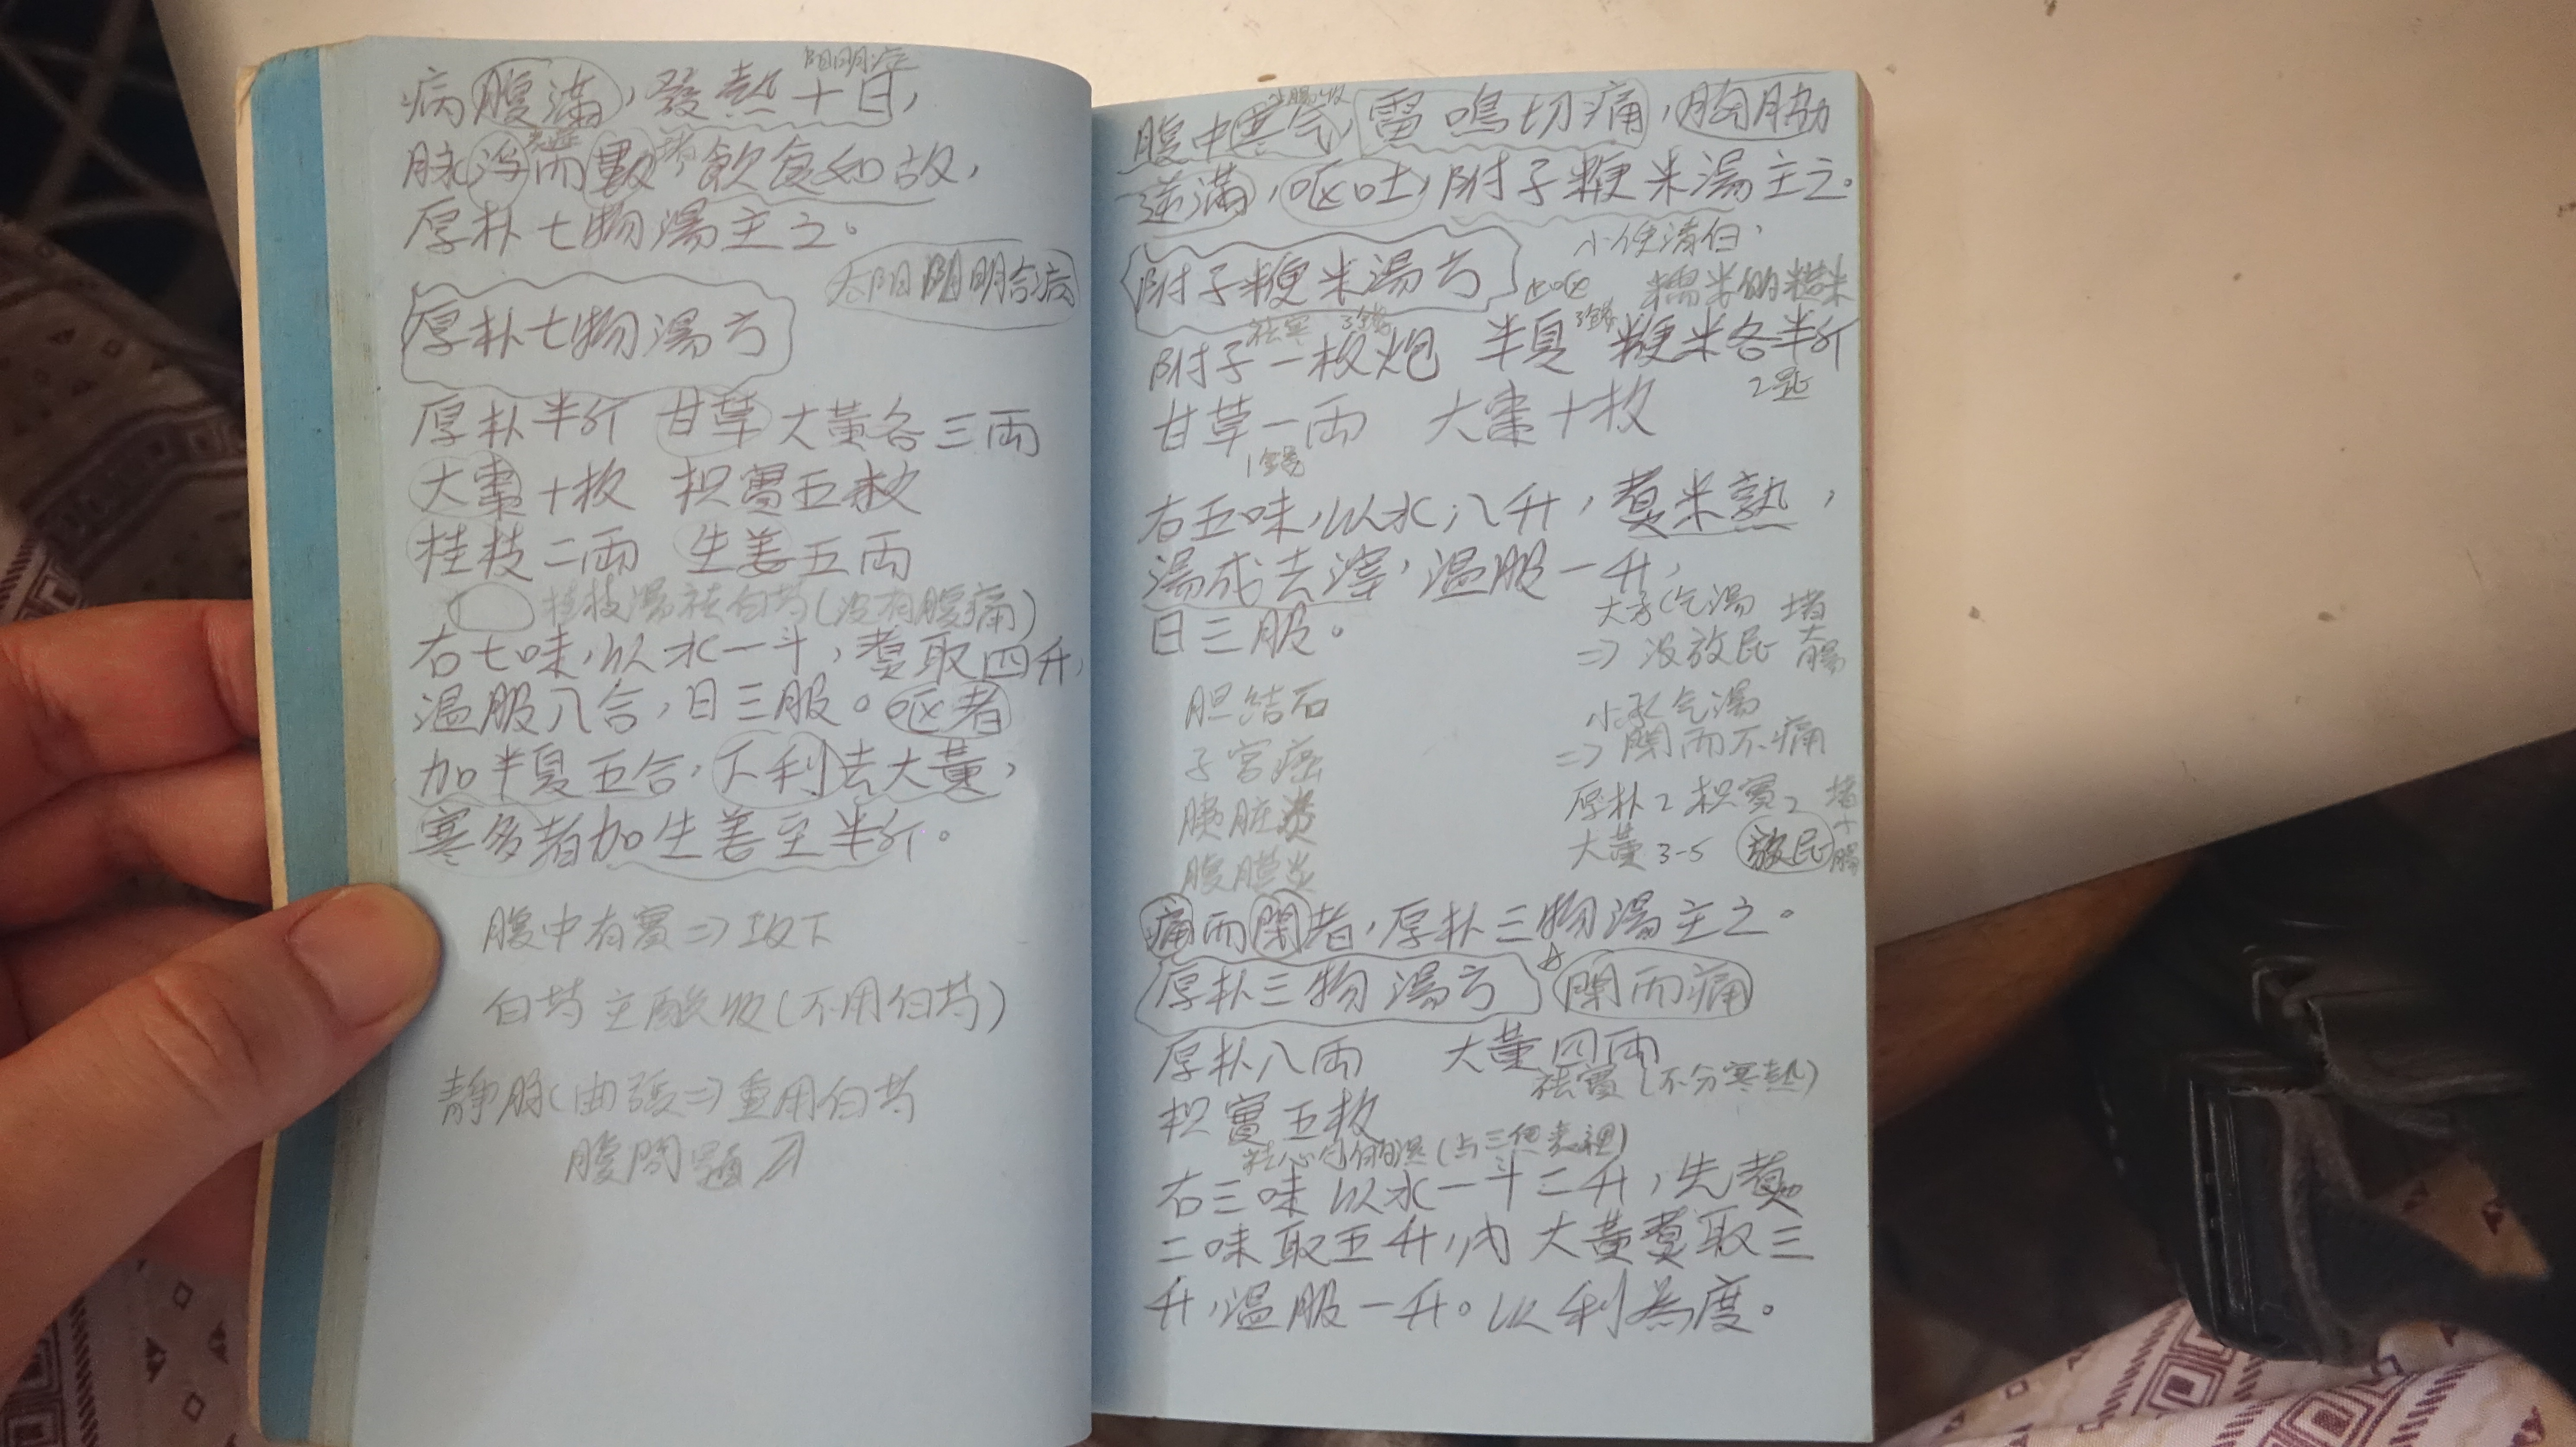 陽明症
病腹滿，發熱十日，
脉浮而數，飲食如故，
厚朴七物湯主之。
太阳陽明合病
厚朴七物湯方
厚朴半斤 甘草大黃各三兩
大棗十枚 枳實五枚
桂枝二兩 生姜五兩
桂枝湯祛白芍(没有腹痛)
右七味，以水一斗，煮取四升，
温服八合，日三服。呕者
加半夏五合，下利去大黃，
寒多者加生姜至半斤。
腹中有實⇒攻下
白芍主酸收(不用白芍)
静脉曲張⇒重用白芍
腹問題
腹中寒气，雷鳴切痛，胸脇
逆滿，呕吐，附子粳米湯主之。
小便清白，
附子粳米湯方
止呕 糯米的糙米
祛寒 3錢 3錢
附子一枚炮 半夏 粳米各半斤
2匙
甘草一兩 大棗十枚
1錢
右五味，以水八升，煮米熟，
湯成去滓，温服一升，
日三服。
大承气湯 堵大腸
⇒没放屁
胆结石
小承气湯
⇒閉而不痛
子宫癌
厚朴2 枳實2 堵小腸
胰脏炎
大黃3-5 放屁
腹膜炎
痛而閉者，厚朴三物湯主之。
厚朴三物湯方 閉而痛
厚朴八兩 大黃四兩
祛實(不分寒熱)
枳實五枚
右三味以水一斗二升，先煮
二味取五升，内大黃煮取三
升，温服一升。以利為度。